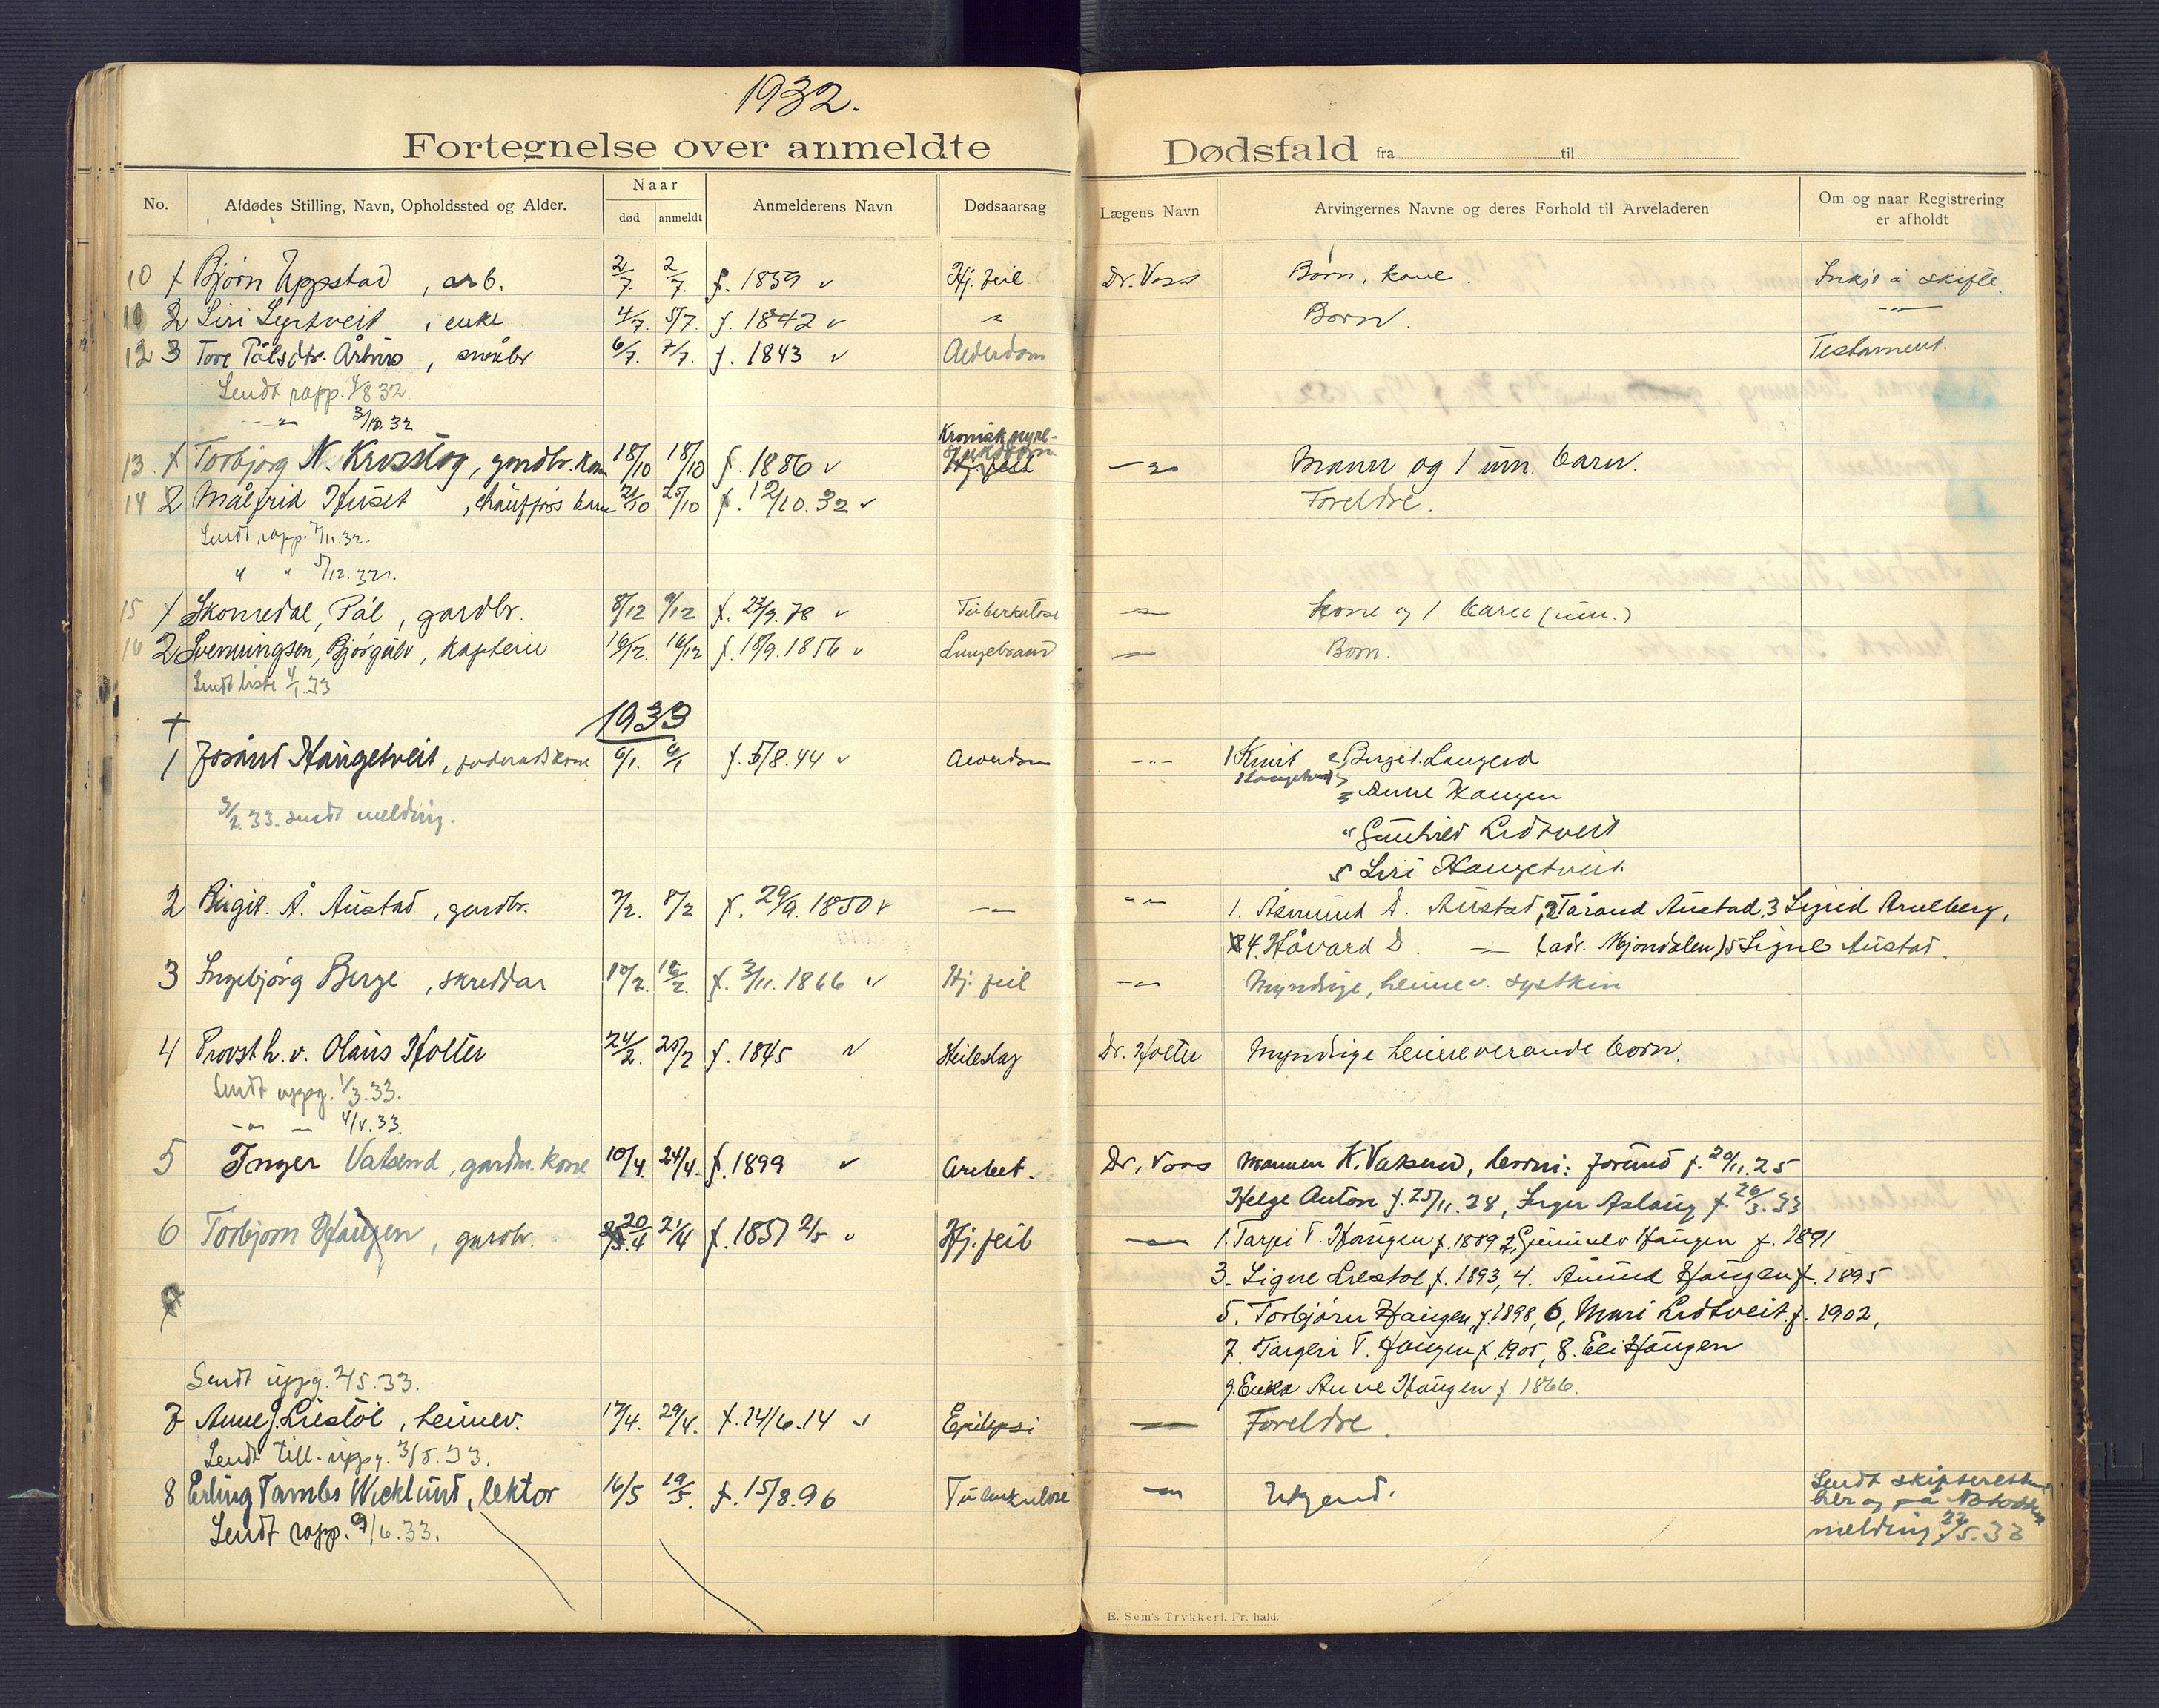 1932.
Fortegnelse over anmeldte Dødsfald fra til
No. Afdødes Stilling, Navn, Opholdssted og Alder. Naar død anmeldt Anmelderens Navn Dødsaarsag Lægens Navn Arvingernes Navne og deres Forhold til Arveladeren Om og naar Registrering er afholdt
10 1 Bjørn Uppstad, arb. 2/7. 2/7. f. 1859 Hj. feil Dr. Voss Børn, kone. Inkje å skifte.
11 2 Siri Lyrtveit, enke 4/7. 5/7. f. 1842 " Born. -"-
12 3 Tore Pålsdtr. Årbus, småbr 6/7. 7/7. f. 1843 Alderdom Testament.
Sendt rapp. 4/8.32
-"- 3/10.32
13. 1 Torbjørg N. Krosslog, gardbr. kone 18/10 18/10 f. 1886 Kronisk nyre-sjukdom -"- Mann og 1 um. barn.
14 2 Målfrid Huset, chaufførs barn 21/10 25/10 f. 12/10.32 Foreldre.
Sendt rapp. 7/11.32.
" " 5/12.32.
15 1 Skomedal, Pål, gardbr. 8/12 9/12 f. 23/9.78 Tuberkulose -"- Kone og 1 barn (um.)
16 2 Svenningsen, Bjørgulv, kaptein 16/12. 16/12 f. 18/9.1856 Lungebrand -"- Born.
Sendt liste 4/1.33
1933
1 Jorånd Haugetveit, føderadskone 6/1. 6/1 f. 5/8.44 Alderdom -"- 1 Knut Haugetveit 2, Birgit Laugerd
3 Anne Haugen
3/2.33. sendt melding.
4 Gunhild Lidtveit
5 Siri Haugetveit.
2 Birgit. Å. Austad, gardbr. 7/2. 8/2 f. 29/9.1850 -"- -"- 1. Åsmund D. Austad, 2 Tårand Austad, 3 Sigrid Arnlberg,
4. Håvard D. -"- (adr. Mjøndalen) 5 Signe Austad.
3 Ingebjørg Berge, skreddar 10/2. 16/2. f. 3/11.1866 Hj. feil -"- Myndige, heimev. systkin
4 Provst h. v. Olaus Holter 24/2. 25/2 f. 1845 Heileslag Dr. Holter Myndige heimeverande born.
Sendt uppg. 1/3.33.
-"- - 4/4.33.
5 Inger Vatsend, gardm. kone 10/4. 24/4. f. 1899 Dr. Voss Mannen K. Vatsend, born: Jorund f. 20/11.25
Helge Anton f. 25/11.28, Inger Aslaug f. 26/3.33
6 Torbjørn Haugen, gardbr. 20/4 21/4 f. 1857 2/5 Hj. feil -"- 1. Tarjei T. Haugen f. 1889 2, Gunnulv Haugen f. 1891
3. Signe Liestøl f. 1893, 4. Åmund Haugen f. 1895
5. Torbjørn Haugen f. 1898, 6, Mari Lidtveit f. 1902,
7. Targeri T. Haugen f. 1905, 8. Eli Haugen
Sendt uppg. 2/5.33.
9. Enka Anne Haugen f. 1866.
7 Anne J. Liestøl, heimev. 17/4. 29/4. f. 14/6.14 Epilepsi -"- Foreldre.
Sendt till.-uppg. 3/5.33.
8 Erling Tambs Wicklund, lektor 16/5 19/5. f. 15/8.96 Tuberkulose -"- Ukjend. Sendt skifteretten
her og på Notodden
melding 22/5.33
Sendt rapp. 9/6.33.
E. Sem's Trykkeri, Fr. hald.